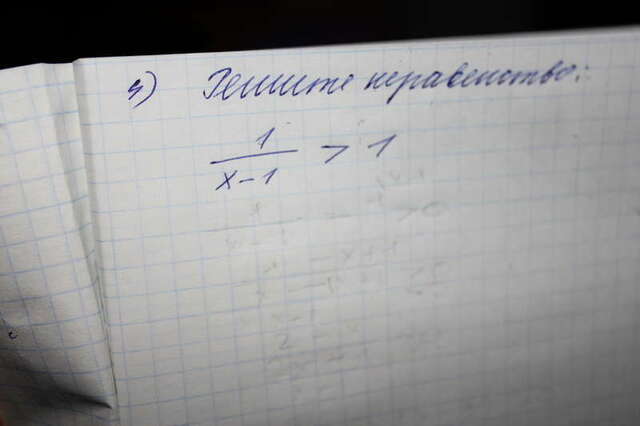 4) Решите неравенство:
1
x-1 > 1